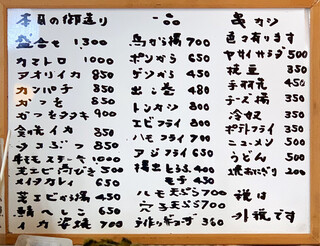 本日の御造り
盛合せ 1,300
カマトロ 1000
アオリイカ 850
カンパチ 850
かつを 850
かつをタタキ 900
850
タコぶつ 850
牛モモステーキ 1000
芝エビ 500
メイタカレイ 650
芝エビから揚 450
鯖へしこ 650
イカ 700
一品
鳥から揚 700
ポンから 650
ゲソから 450
出し巻 480
トンカツ 800
エビフライ 800
ハモフライ 700
アジフライ 650
揚出しとうふ 400
モチ 450
ハモ天ぷら 700
穴子天ぷら 700
手作ギョーザ 360
串カツ
色々有ります
ヤサイサラダ 500
枝豆 350
手羽先 450
チーズ揚 350
冷奴 350
ポテトフライ 350
ニューメン 500
うどん 500
焼おにぎり 200
税は
外税です